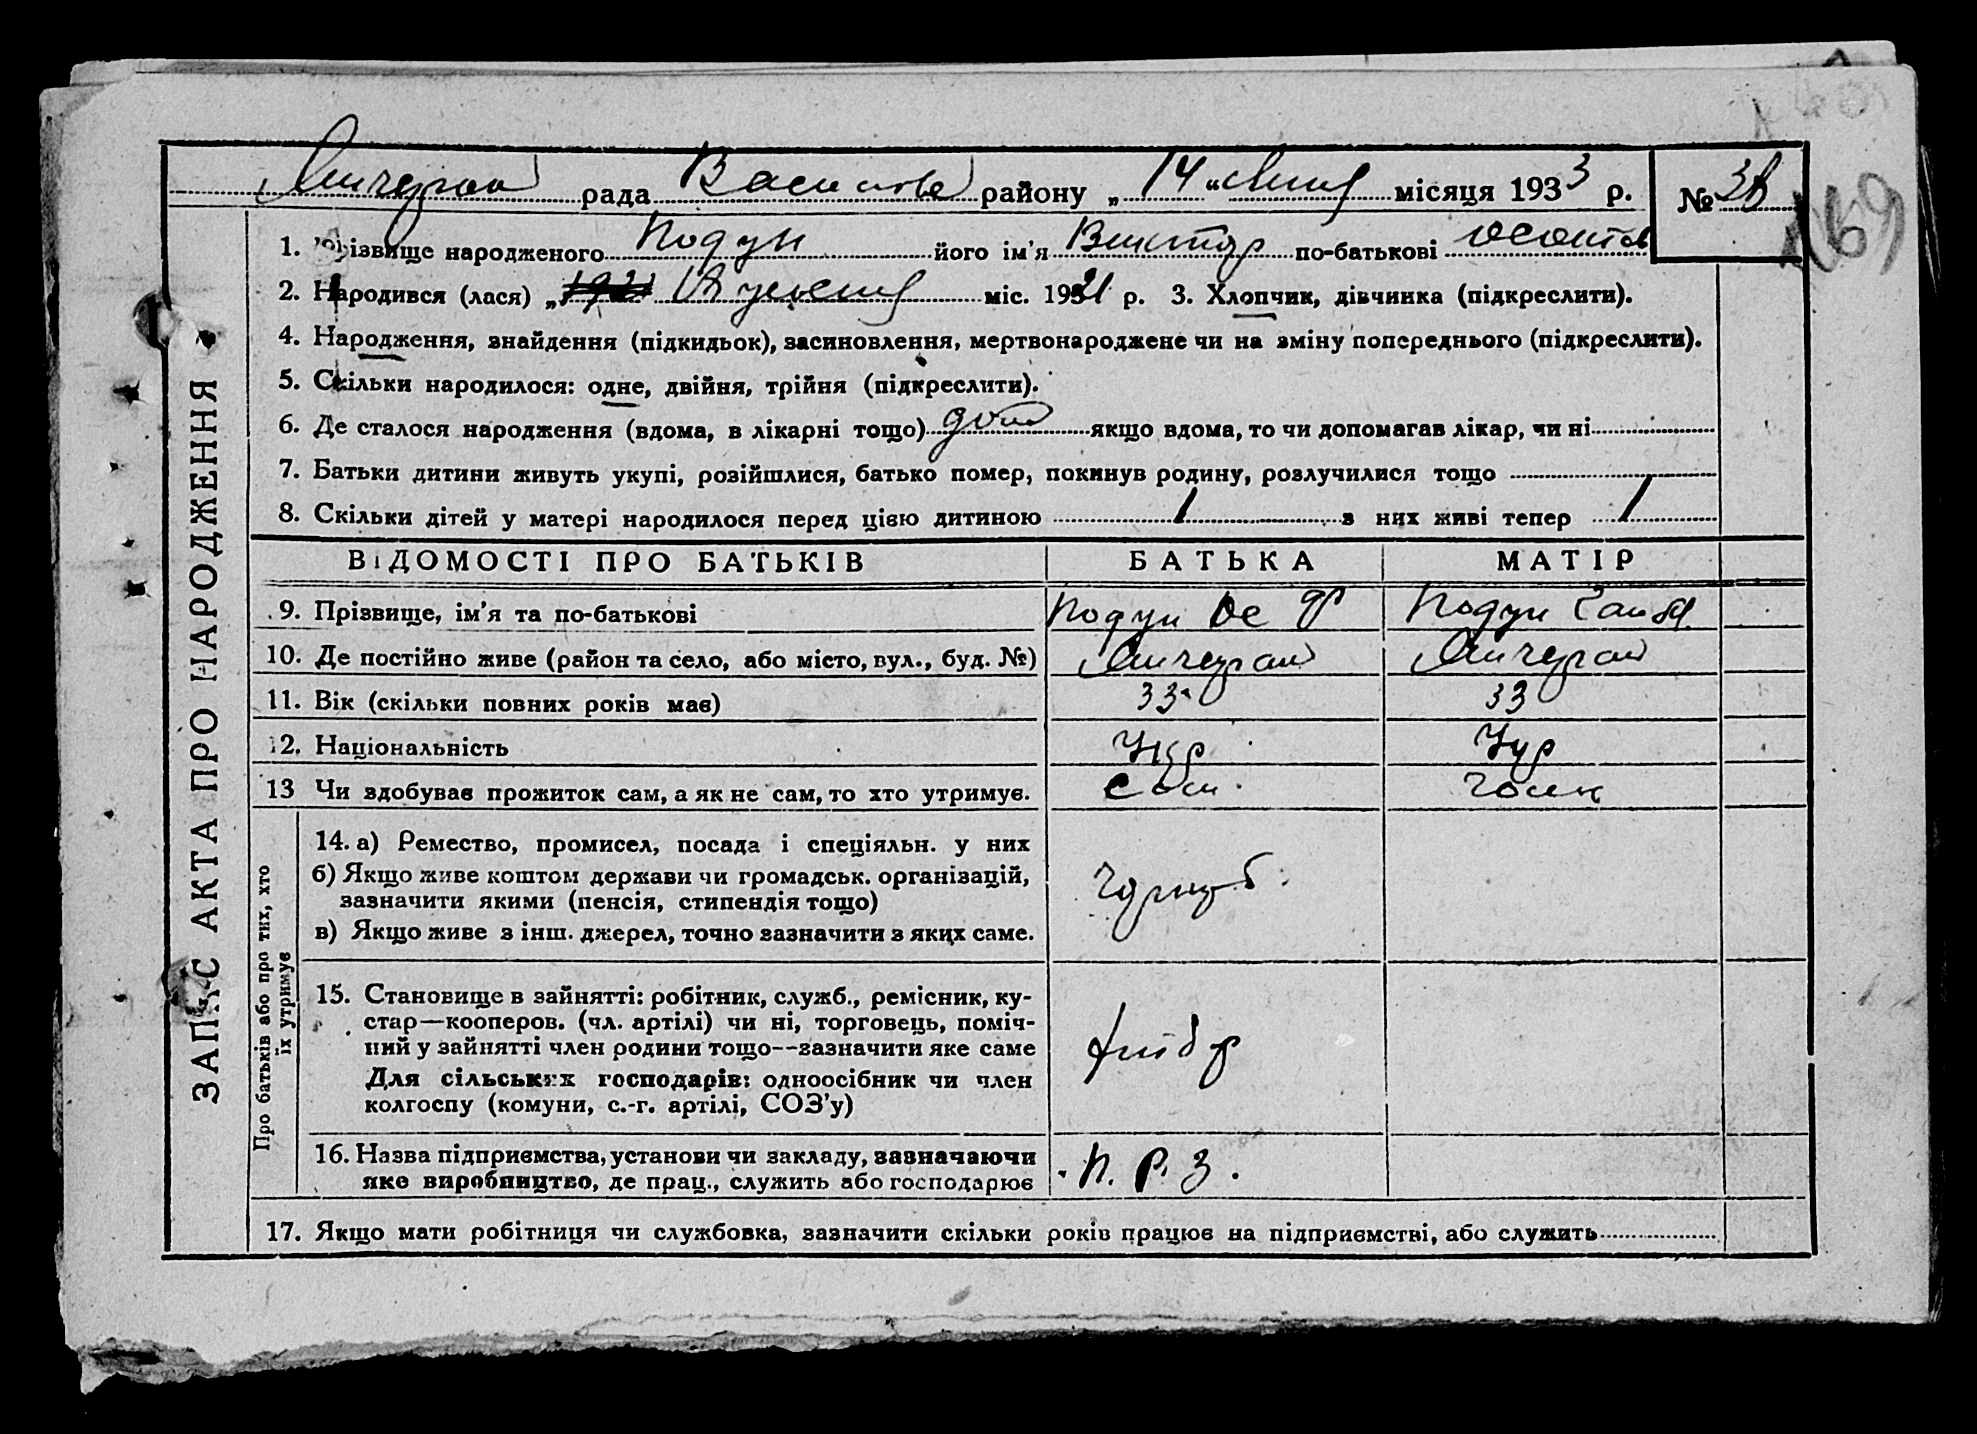 рада Василівс району „ 14 " липня місяця 1933 р. № 38
1. Прізвище народженого Кодун його ім'я Виктор по-батькові
2. Народився (лася) „ міс. 1921 р. 3. Хлопчик, дівчинка (підкреслити).
4. Народження, знайдення (підкидьок), засиновлення, мертвонароджене чи на зміну попереднього (підкреслити).
5. Скільки народилося: одне, двійня, трійня (підкреслити).
6. Де сталося народження (вдома, в лікарні тощо) дома якщо вдома, то чи допомагав лікар, чи ні
7. Батьки дитини живуть укупі, розійшлися, батько помер, покинув родину, розлучилися тощо
8. Скільки дітей у матері народилося перед цією дитиною 1 з них живі тепер 1
ВІДОМОСТІ ПРО БАТЬКІВ БАТЬКА МАТІР
9. Прізвище, ім'я та по-батькові Кодун Ос Кодун
10. Де постійно живе (район та село, або місто, вул., буд. №)
11. Вік (скільки повних років має) 33 33
12. Національність Укр Укр
13 Чи здобуває прожиток сам, а як не сам, то хто утримує. Сам
14. а) Ремество, промисел, посада і спеціяльн. у них
б) Якщо живе коштом держави чи громадськ. організацій,
зазначити якими (пенсія, стипендія тощо)
в) Якщо живе з інш. джерел, точно зазначити з яких саме.
15. Становище в зайнятті: робітник, служб., ремісник, ку-
стар—кооперов. (чл. артілі) чи ні, торговець, поміч-
ний у зайнятті член родини тощо--зазначити яке саме
Для сільських господарів: одноосібник чи член
колгоспу (комуни, с.-г. артілі, СОЗ'у)
16. Назва підприємства, установи чи закладу, зазначаючи
яке виробництво, де прац., служить або господарює П. Р. З.
17. Якщо мати робітниця чи службовка, зазначити скільки років працює на підприємстві, або служить
ЗАПИС АКТА ПРО НАРОДЖЕННЯ
Про батьків або про тих, хто
їх утримує